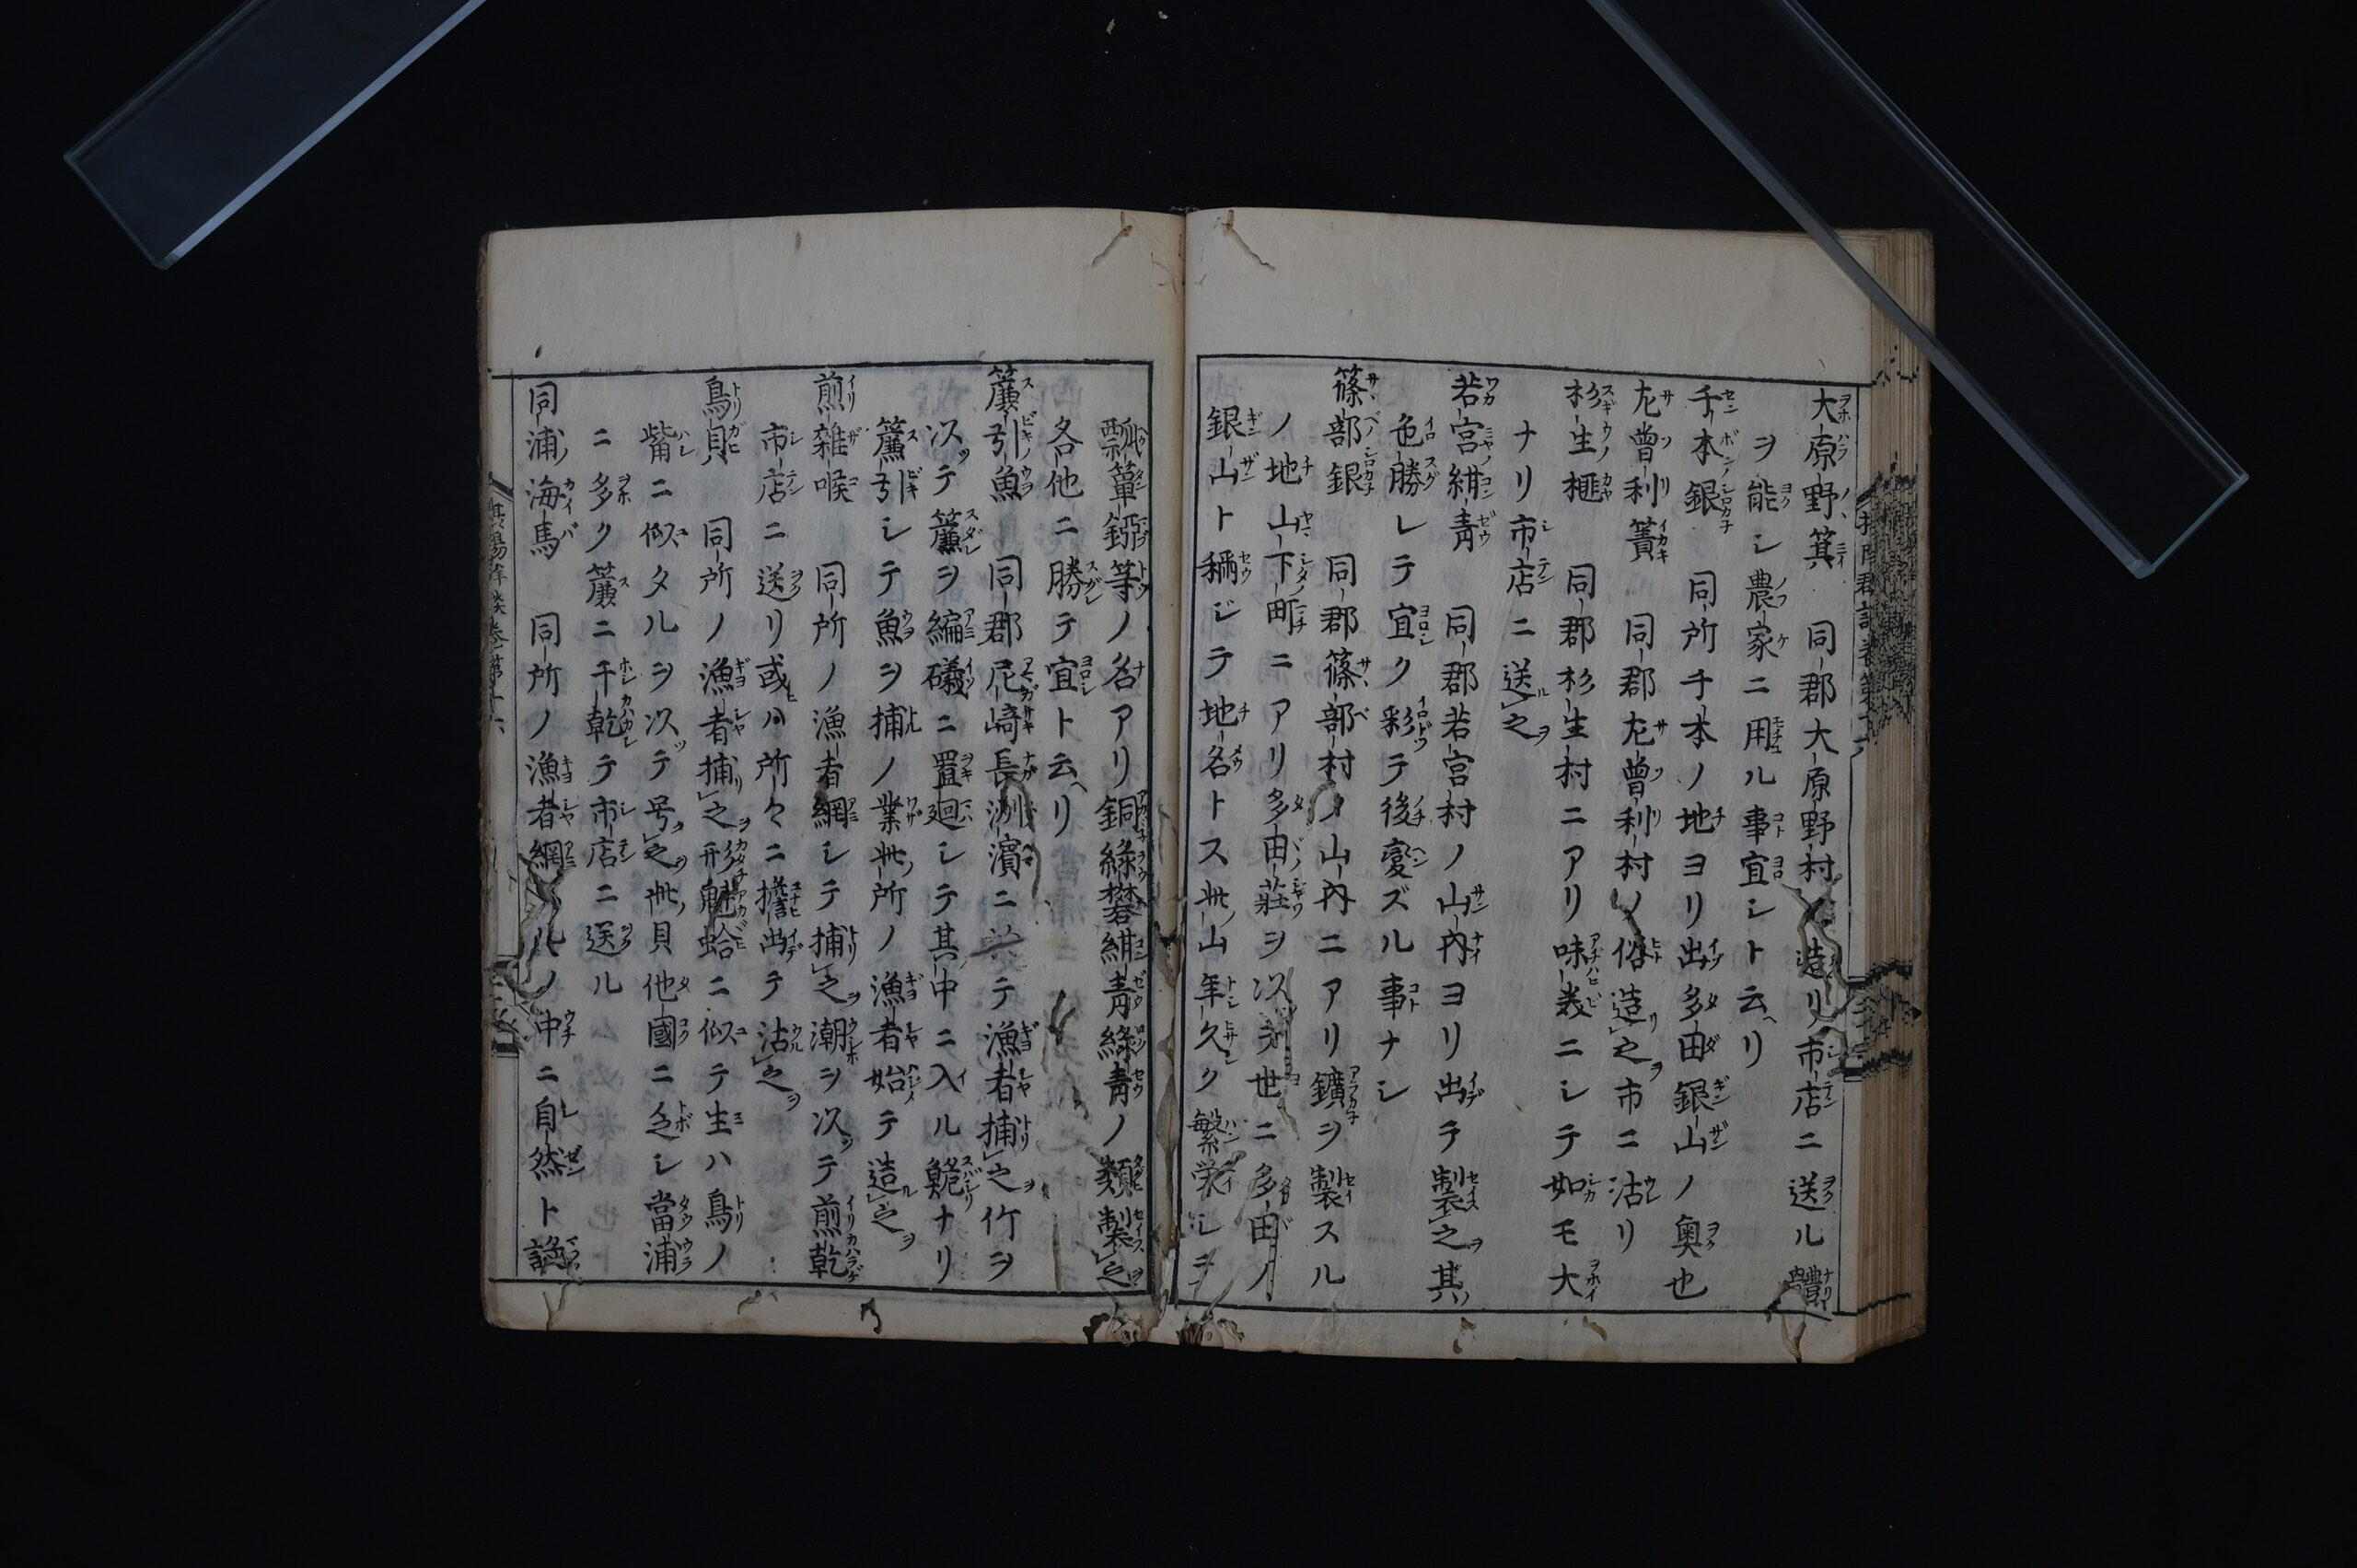 大原野箕 同郡大原野村ノ造リ市店ニ送ル體
ヲ能シ農家ニ用ル事宜シト云リ
千本銀 同所千本ノ地ヨリ出多田銀山ノ奥也
尨曽利簀 同郡尨曽利村ノ俗造之市ニ沽リ
杉生榧 同郡杉生村ニアリ味美ニシテ如モ大
ナリ市店ニ送之
若宮紺青 同郡若宮村ノ山内ヨリ出テ製之其
色勝レテ宜ク彩テ後変ズル事ナシ
篠部銀 同郡篠部村ノ山内ニアリ鑛ヲ製スル
ノ地山下町ニアリ多田莊ヲ以テ世ニ多田ノ
銀山ト稱ジテ地名トス此山年久ク繁栄シテ
瓢簞等ノ名アリ銅緑礬紺青緑青ノ類製之
各他ニ勝テ宜ト云リ
簾引魚 同郡尼崎長洲濱ニ テ漁者捕之竹ヲ
以テ簾ヲ編礒ニ置廻シテ其中ニ入ル ナリ
簾引シテ魚ヲ捕ノ業此所ノ漁者始テ造之
煎雜喉 同所ノ漁者網シテ捕之潮ヲ以テ煎乾
市店ニ送リ或ハ所々ニ擔出テ沽之
鳥貝 同所ノ漁者捕之形魁蛤ニ似テ生ハ鳥ノ
觜ニ似タルヲ以テ号之此貝他國ニ乏シ當浦
ニ多ク簾ニ干乾テ市店ニ送ル
同浦海馬 同所ノ漁者網 ノ中ニ自然ト